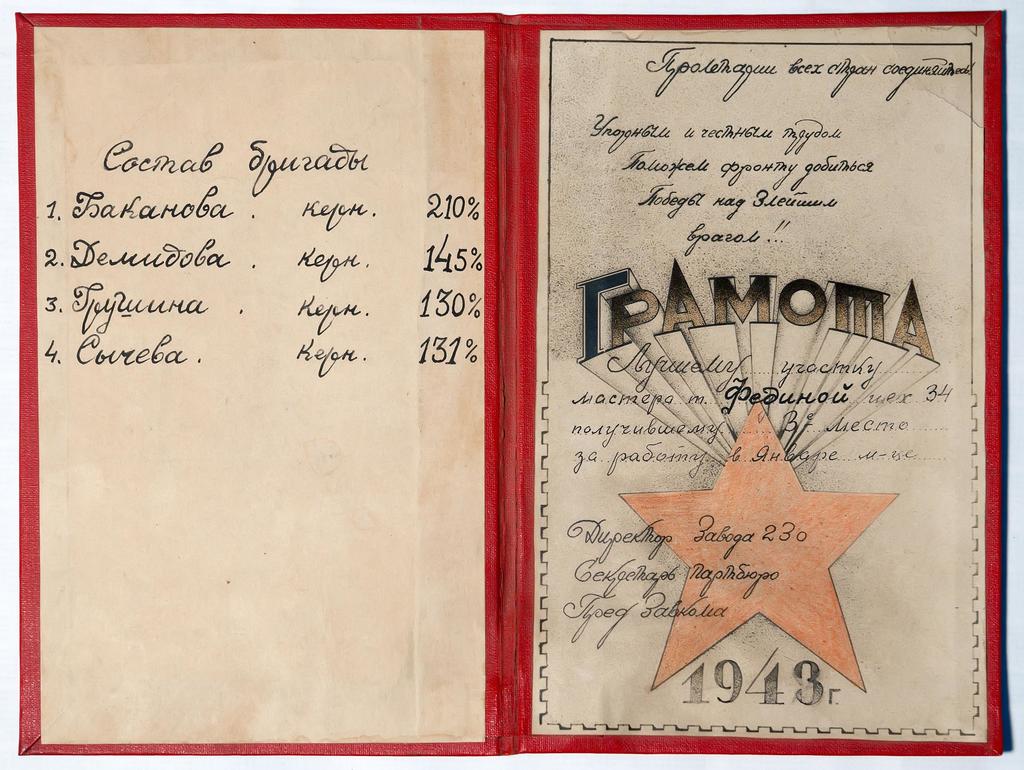 Состав бригады
1. Баканова . керн. 210%
2. Демидова . керн. 145%
3. Грушина . керн. 130%
4. Сычева . керн. 131%
Пролетарии всех стран соединяйтесь!
Упорным и честным трудом
Поможем фронту добиться
Победы над Злейшим
врагом!!
ГРАМОТА
Лучшему участку
мастера т. Фединой цех 34
получившему 3е место
за работу в Январе м-це
Директор Завода 230
Секретарь партбюро
Пред Завкома
1943г.